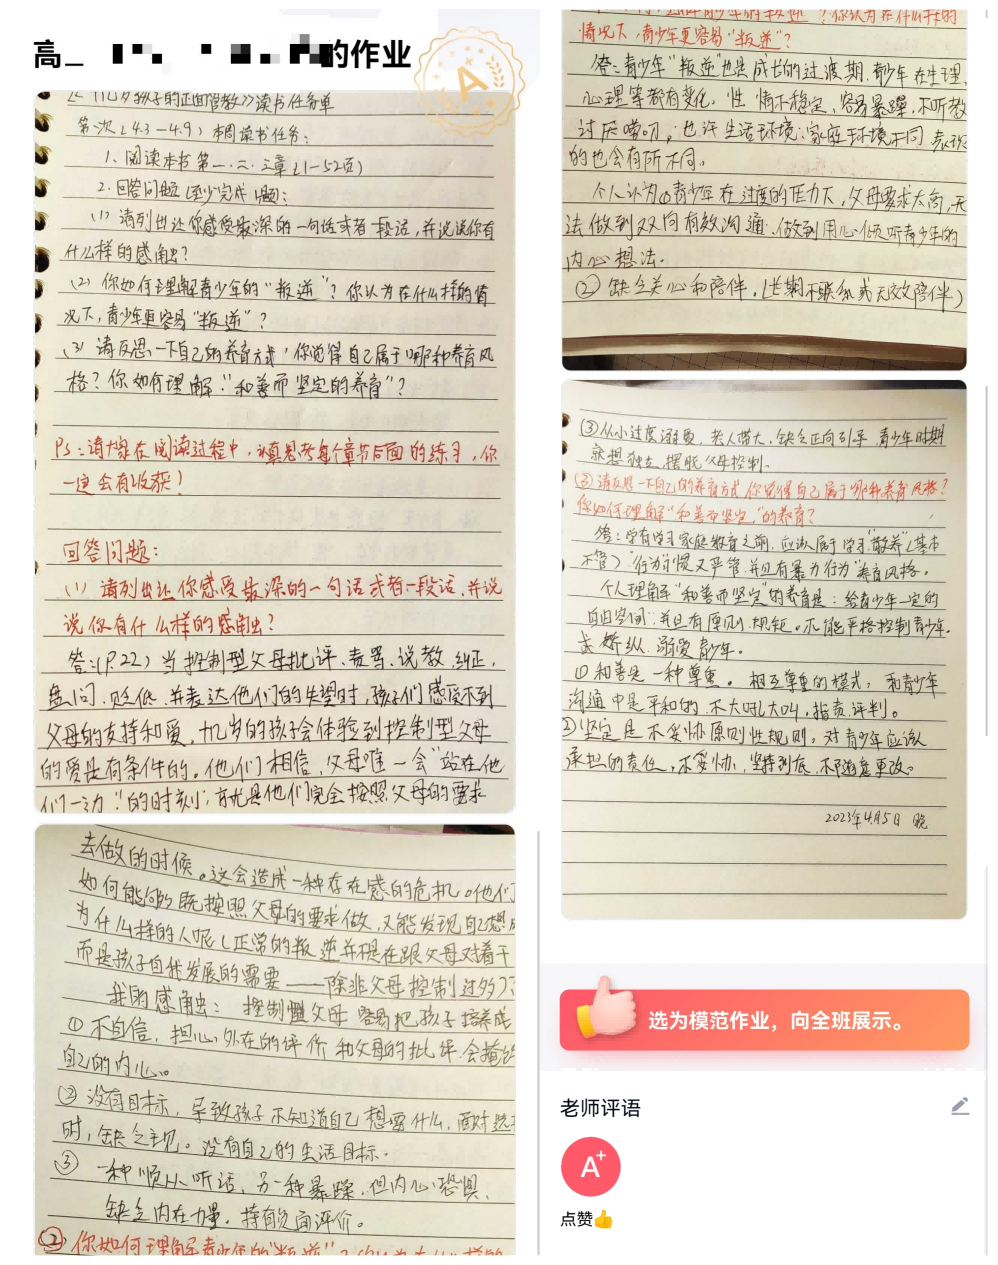 高_
的作业
A
《十几岁孩子的正面管教》读书任务单
第一次(4.3-4.9)本周读书任务:
1、阅读本书第一.二.三章(1-52页)
2.回答问题(至少完成1题):
(1) 请列出让你感受最深的一句话或者一段话,并说说你有
什么样的感触?
(2) 你如何理解青少年的"叛逆"?你认为在什么样的情
况下,青少年更容易"叛逆"?
(3) 请反思一下自己的养育方式,你觉得自己属于哪种养育风
格?你如何理解:"和善而坚定的养育"?
Ps:请大家在阅读过程中,认真思考每个章节后面的练习,你
一定会有收获!
回答问题:
(1) 请列出让你感受最深的一句话或者一段话,并说
说你有什么样的感触?
答:(P.22)当控制型父母批评、责骂、说教、纠正,
盘问、贬低、并表达他们的失望时,孩子们感受不到
父母的支持和爱,十几岁的孩子会体验到控制型父母
的爱是有条件的。他们相信,父母唯一会"站在他
们一边"的时刻,就是他们完全按照父母的要求
去做的时候。这会造成一种存在感的危机。他们
如何能够既按照父母的要求做,又能发现自己想成
为什么样的人呢(正常的叛逆并不是在跟父母对着干
而是孩子自我发展的需要——除非父母控制过多)?
我的感触:控制型父母容易把孩子培养成
①不自信,担心外在的评价和父母的批评.会掩饰
自己的内心。
②没有目标,导致孩子不知道自己想要什么,面对选择
时,缺乏主见。没有自己的生活目标.
③ 一种顺从听话,另一种暴躁,但内心恐惧.
缺乏内在力量.持有负面评价。
(2)你如何理解青少年的"叛逆"?你认为在什么样的
情况下,青少年更容易"叛逆"?
答:青少年"叛逆"也是成长的过渡期.青少年在生理、
心理等都有变化.性情不稳定、容易暴躁,不听教
讨厌唠叨,也许生活环境.家庭环境不同.表现
的也会有所不同。
个人认为①青少年在过度的压力下,父母要求太高,无
法做到双向有效沟通.做到用心倾听青少年的
内心想法.
②缺乏关心和陪伴.(长期不联系或无效陪伴)
③从小过度溺爱,老人带大,缺乏正向引导 青少年时期
就想独立,摆脱父母控制.
(3)请反思一下自己的养育方式.你觉得自己属于哪种养育风格?
你如何理解"和善而坚定"的养育?
答:学有学习家庭教育之前,应该属于学习"散养"(基本
不管)"行为"习惯又严管,并且有暴力行为"养育风格.
个人理解"和善而坚定"的养育是:给青少年一定的
自由空间,并且有原则.规矩.不能严格控制青少年.
去娇纵.溺爱青少年.
①和善是一种尊重。相互尊重的模式,和青少年
沟通中是平和的.不大吼大叫,指责、评判。
②坚定是不妥协原则性规则,对青少年应该
承担的责任,不妥协,坚持到底,不随意更改。
2023年4月5日 晚
选为模范作业,向全班展示。
老师评语
A+
点赞👍